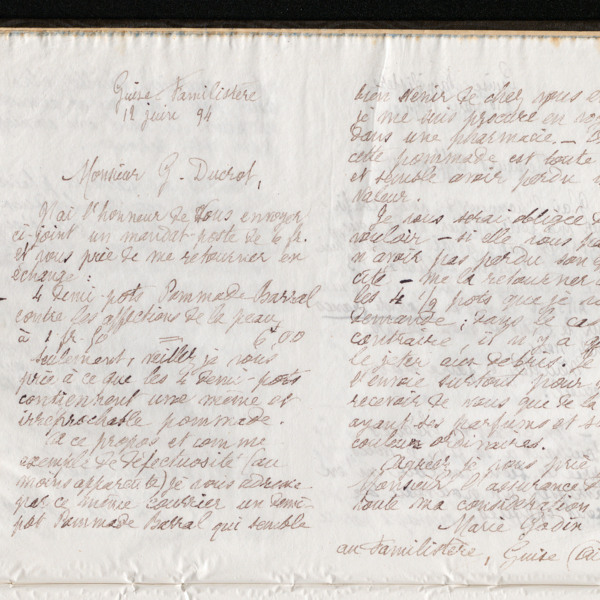 Guise Familistère
12 juin 94
Monsieur G. Ducrot,
J'ai l'honneur de vous envoyer
ci-joint un mandat-poste de 6 fr.
et vous prie de me retourner en
échange :
4 demi-pots Pommade Barral
contre les affections de la peau,
à 1 fr. 50 = 6f,00
Seulement, veillez je vous
prie à ce que les 4 demi-pots
contiennent une même et
irréprochable pommade.
A ce propos et comme
exemple de défectuosité (au
moins apparente) je vous adresse
par ce même courrier un demi-
pot Pommade Barral qui semble
bien venir de chez vous e
je me suis procuré en
dans une pharmacie. —
cette pommade est toute
et semble avoir perdu
valeur.
Je vous serai obligée d
vouloir — si elle vous pa
n'avoir pas perdu son
cité — me la retourner
les 4 1/2 pots que je
demande ; dans le cas
contraire, il n'y a q
le jeter aux débris. Je
l'envoie surtout pour
recevoir de vous que de la
ayant ses parfums et s
couleur ordinaires.
Agréez je vous prie
Monsieur l'assurance d
toute ma considération
Marie Godin
au Familistère, Guise (